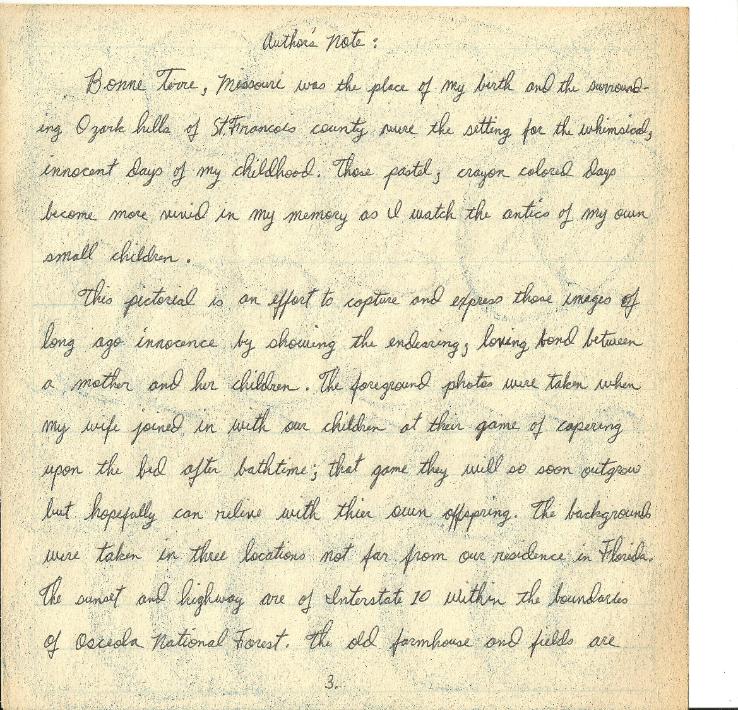 Author's Note :
Bonne Terre, Missouri was the place of my birth and the surround-
ing Ozark hills of St. Francois county were the setting for the whimsical,
innocent days of my childhood. Those pastel, crayon colored days
become more vivid in my memory as I watch the antics of my own
small children.
This pictorial is an effort to capture and express those images of
long ago innocence by showing the endearing, loving bond between
a mother and her children. The foreground photos were taken when
my wife joined in with our children at their game of capering
upon the bed after bathtime; that game they will so soon outgrow
but hopefully can relive with thier own offspring. The backgrounds
were taken in three locations not far from our residence in Florida.
The sunset and highway are of Interstate 10 within the boundaries
of Osceola National Forest. The old farmhouse and fields are
3.